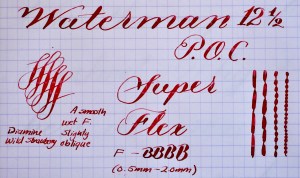 Waterman 12 ½
P.O.C.
Super
Flex
F - BBBB
(0.5mm - 2.0mm)
A smooth
wet F.
Slightly
oblique
Diamine
Wild Strawberry